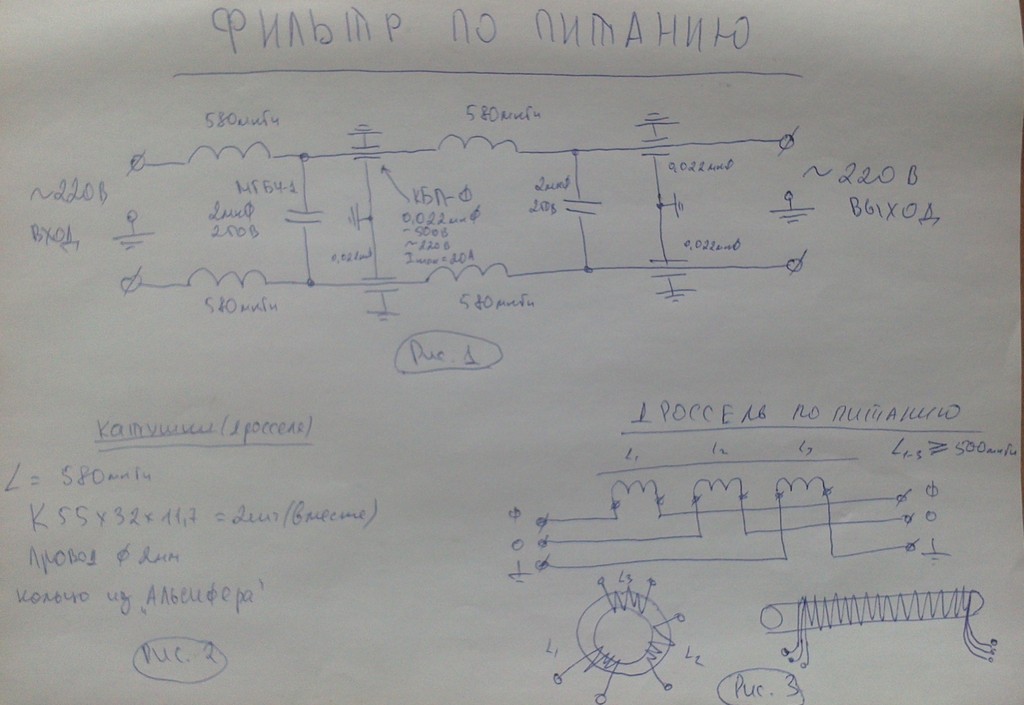 ФИЛЬТР ПО ПИТАНИЮ
580мкГн 580мкГн
~220В
ВХОД
МГБЧ-1
2мкФ
250В
КБП-Ф
0,022мкФ
~500В
~220В
Imax=20А
0,022мкФ
2мкФ
250В
0,022мкФ
0,022мкФ
~220В
ВЫХОД
580мкГн 580мкГн
Рис. 1
Катушки (дросселя)
L = 580мкГн
К 55х32х11,7 = 2шт (вместе)
Провод ф 2мм
кольцо из „Альсифера"
Рис. 2
ДРОССЕЛЬ ПО ПИТАНИЮ
L1 L2 L3 L1-3 ⩾ 500мкГн
Ф Ф
О О
L3
L1 L2
Рис. 3